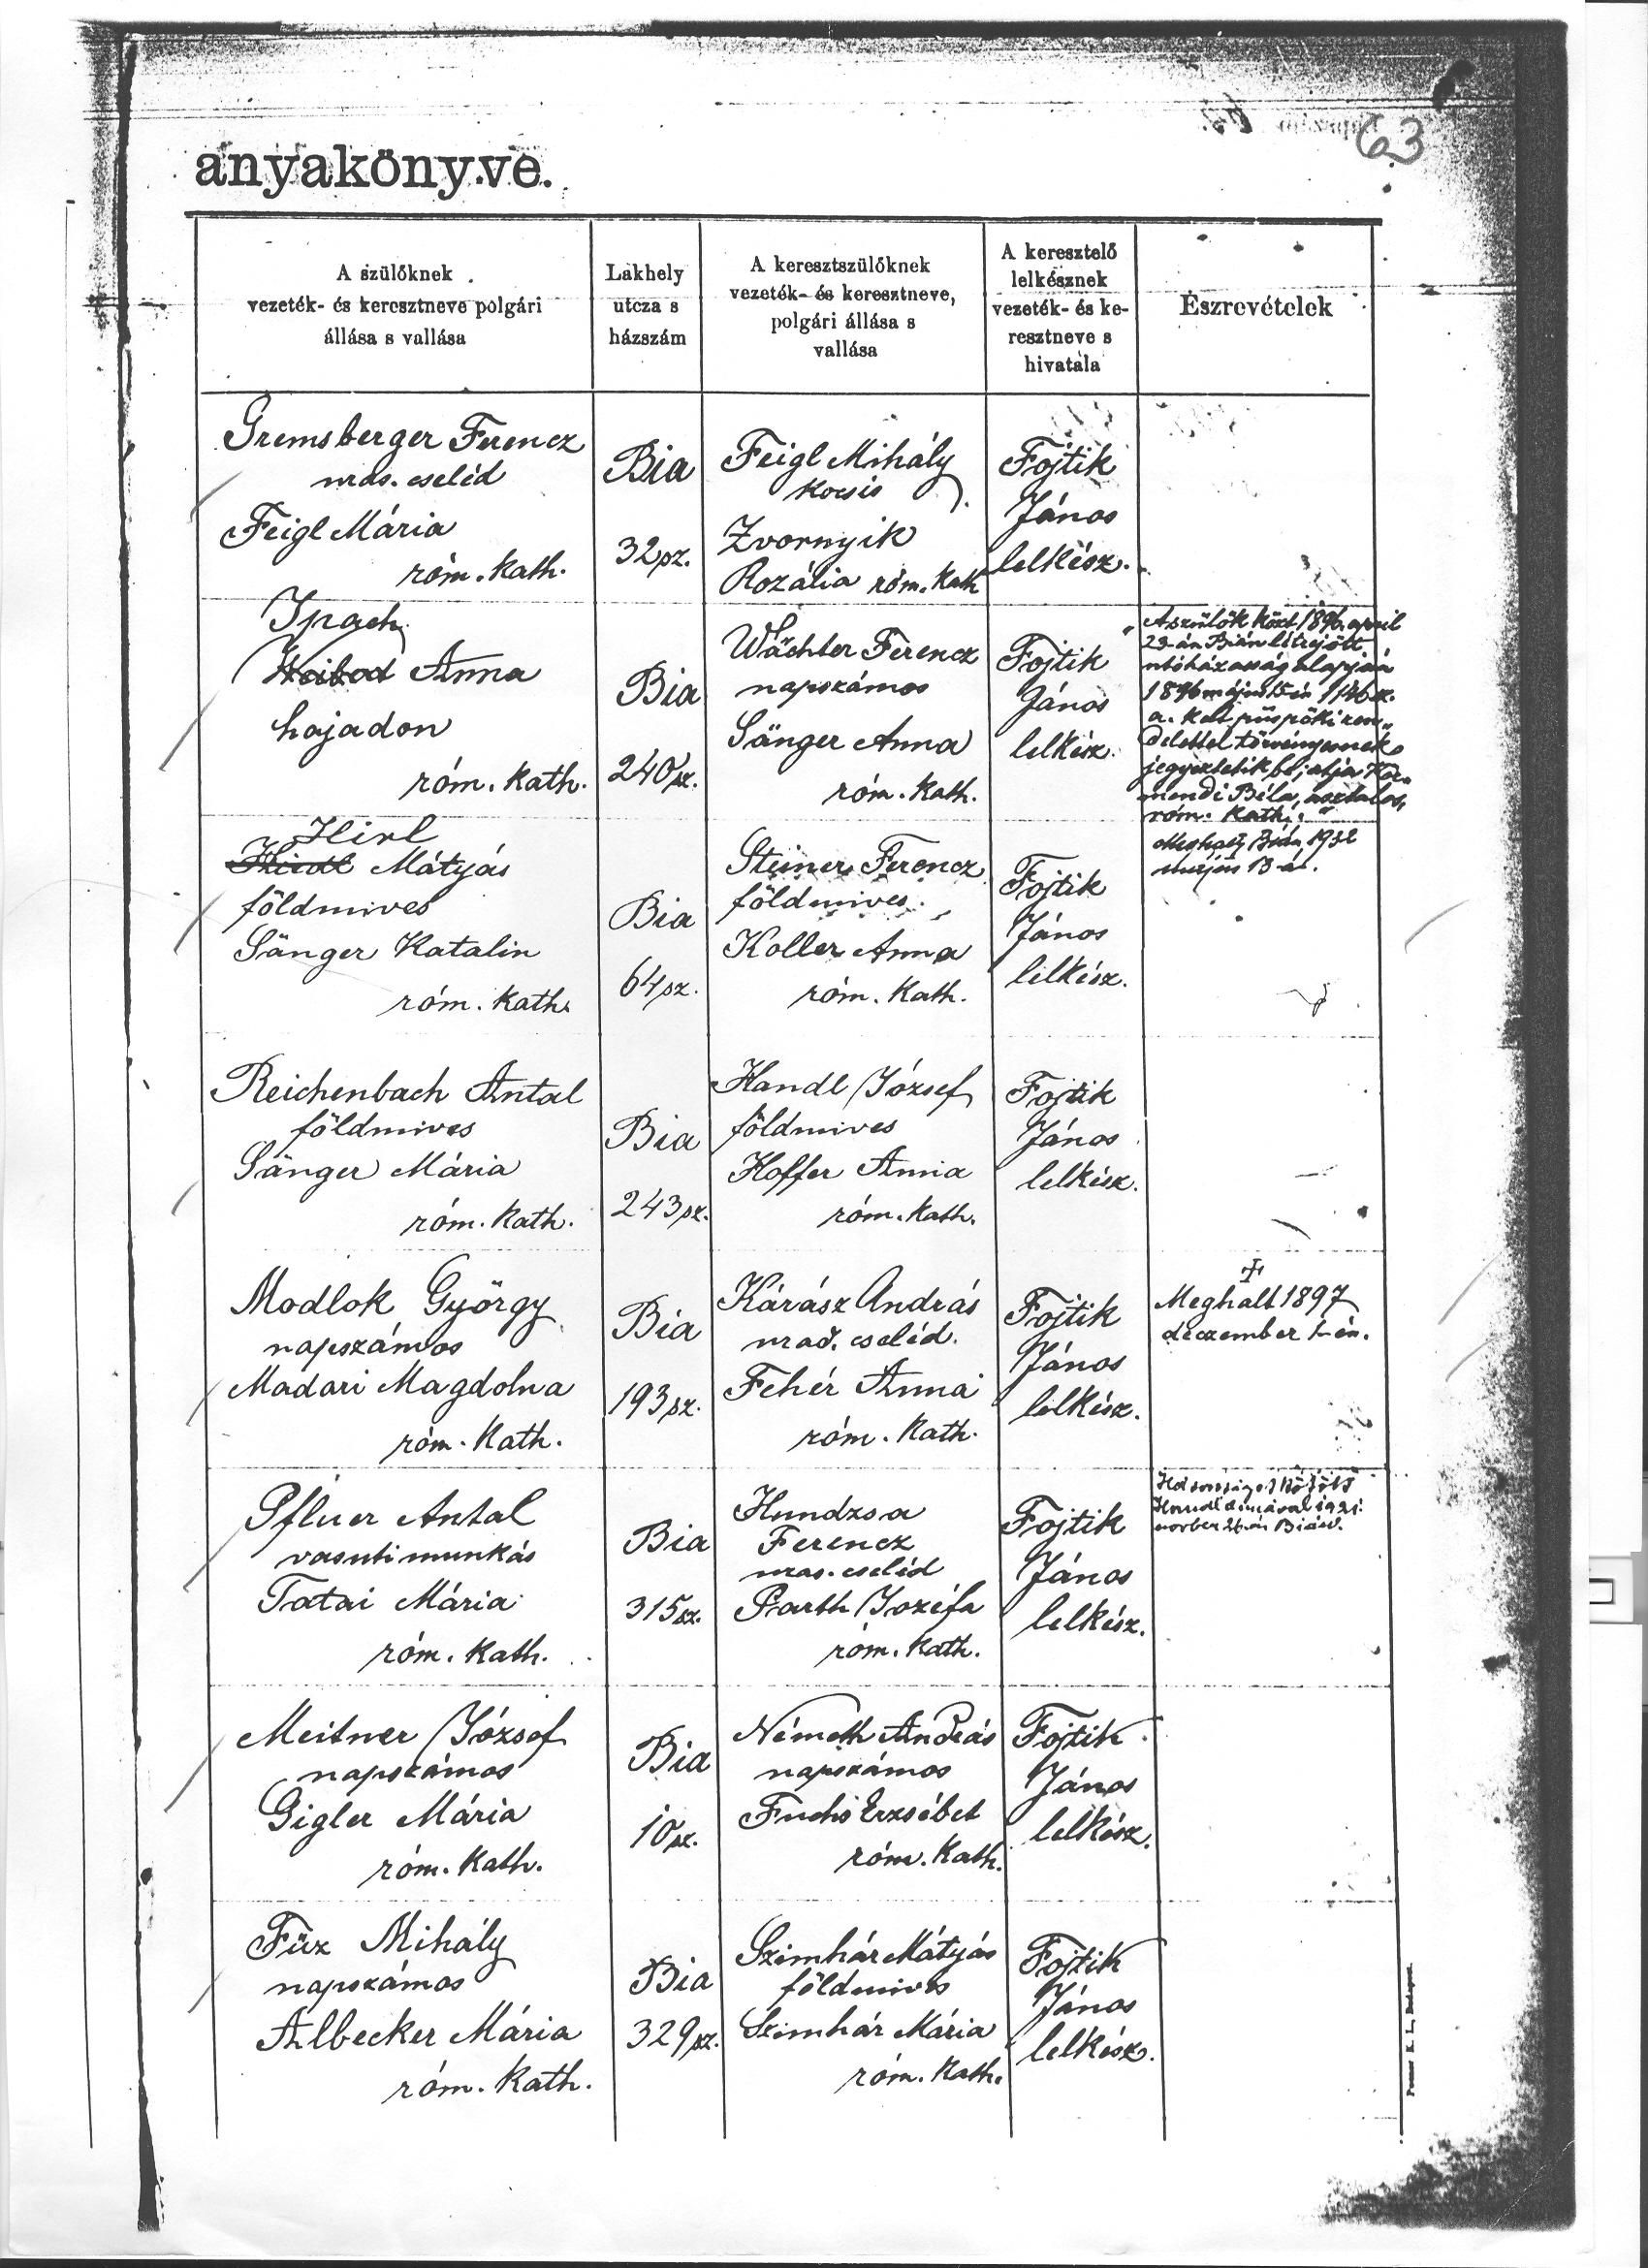 63
anyakönyve.
A szülőknek
vezeték- és keresztneve polgári
állása s vallása
Lakhely
utcza s
házszám
A keresztszülőknek
vezeték- és keresztneve,
polgári állása s
vallása
A keresztelő
lelkésznek
vezeték- és ke-
resztneve s
hivatala
Észrevételek
Gremsberger Ferencz
uras. cseléd
Feigl Mária
róm. kath.
Bia
32 sz.
Feigl Mihály
kocsis
Zvornyik
Rozália róm. kath
Fojtik
János
lelkész.
Anna
hajadon
róm. kath.
Bia
240 sz.
Wächter Ferencz
napszámos
Sänger Anna
róm. kath.
Fojtik
János
lelkész.
A szülők közt 1896. april
23-án Bián létrejött
utóházasság alapján
1896 május 15-én 1146 sz.
a. kelt püspöki ren-
delettel törvényesnek
jegyeztetik be; atja Kör-
mendi Béla, asztalos,
róm. kath.
Hirl
Mátyás
földmives
Sänger Katalin
róm. kath.
Bia
64 sz.
Steiner Ferencz
földmives
Koller Anna
róm. kath.
Fojtik
János
lelkész.
Meghalt Bián 1932
május 13-án.
Reichenbach Antal
földmives
Sänger Mária
róm. kath.
Bia
243 sz.
Handl József
földmives
Hoffer Anna
róm. kath.
Fojtik
János
lelkész.
Modlok György
napszámos
Madari Magdolna
róm. kath.
Bia
193 sz.
Kárász András
urad. cseléd.
Fehér Anna
róm. kath.
Fojtik
János
lelkész.
Meghalt 1897
deczember 1-én.
Pfluer Antal
vasuti munkás
Tatai Mária
róm. kath.
Bia
315 sz.
Hundzsa
Ferencz
uras. cseléd
Parth Jozéfa
róm. kath.
Fojtik
János
lelkész.
Házasságot kötött
Handl Annával 1921.
novber 26-án Bián.
Meitner József
napszámos
Gigler Mária
róm. kath.
Bia
10 sz.
Németh András
napszámos
Fuchs Erzsébet
róm. kath.
Fojtik
János
lelkész.
Füz Mihály
napszámos
Albecker Mária
róm. kath.
Bia
329 sz.
Szimhár Mátyás
földmives
Szimhár Mária
róm. kath.
Fojtik
János
lelkész.